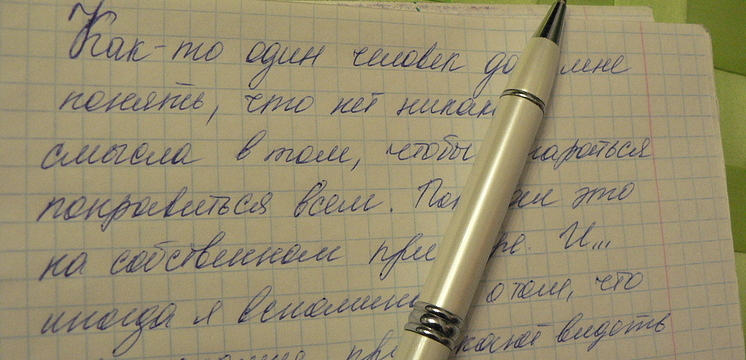 Как-то один человек да мне
понять, что нет никак
смысла в том, чтобы араться
понравиться всем. Пок ал это
на собственном при ре. И...
иногда я вспомина о том, что
видеть